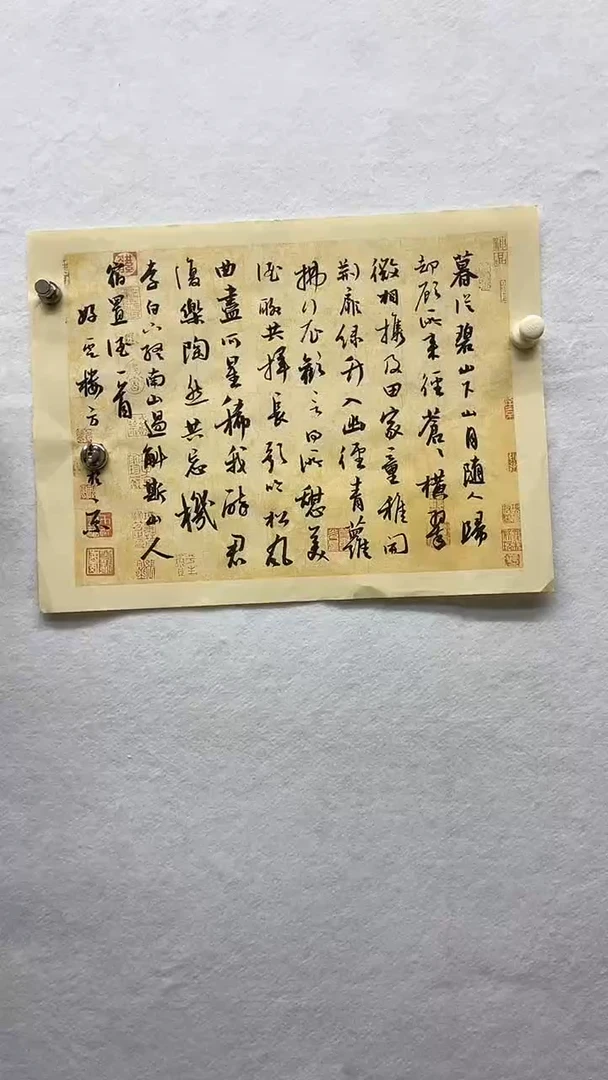 暮從碧山下山月隨人歸
却顧所來徑蒼々橫翠
微相攜及田家童稚開
荊扉綠竹入幽徑青蘿
拂行衣歡言得所憩美
酒聊共揮長歌吟松風
曲盡河星稀我醉君
復樂陶然共忘機
李白下終南山過斛斯山人
宿置酒一首
好雲樓方